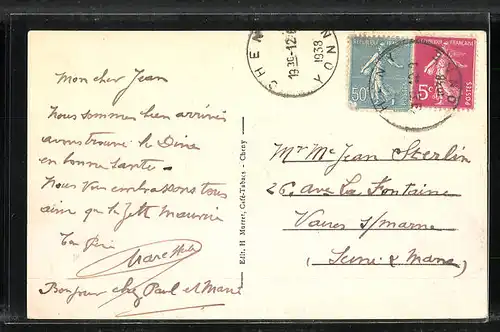 Mon cher Jean
Nous sommes bien arrivés
avons trouvé le Dine
en bonne santé
Nous vous embrassons tous
ainsi que la petite Maurice
Ton Père
Bonjour chez Paul et Marie
Edit. H Morret, Café-Tabacs - Cheny
19 30-12 1938
YONNE
RÉPUBLIQUE FRANÇAISE
50c
POSTES
RÉPUBLIQUE FRANÇAISE
5c
POSTES
Mr Me Jean Sterlin
26 ave La Fontaine
Vaires s/marne
(Seine & Marne)